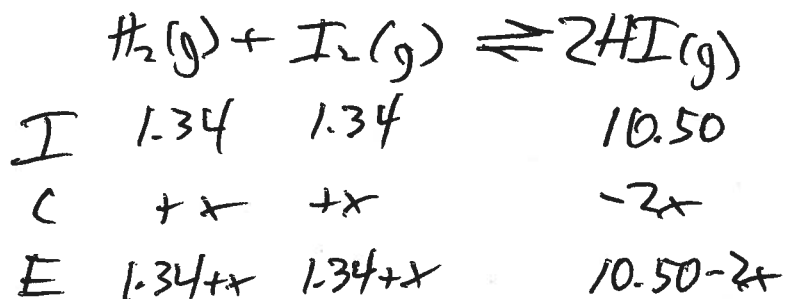 H₂(g) + I₂(g) ⇌ 2HI(g)
I 1.34 1.34 10.50
C +x +x -2x
E 1.34+x 1.34+x 10.50-2x